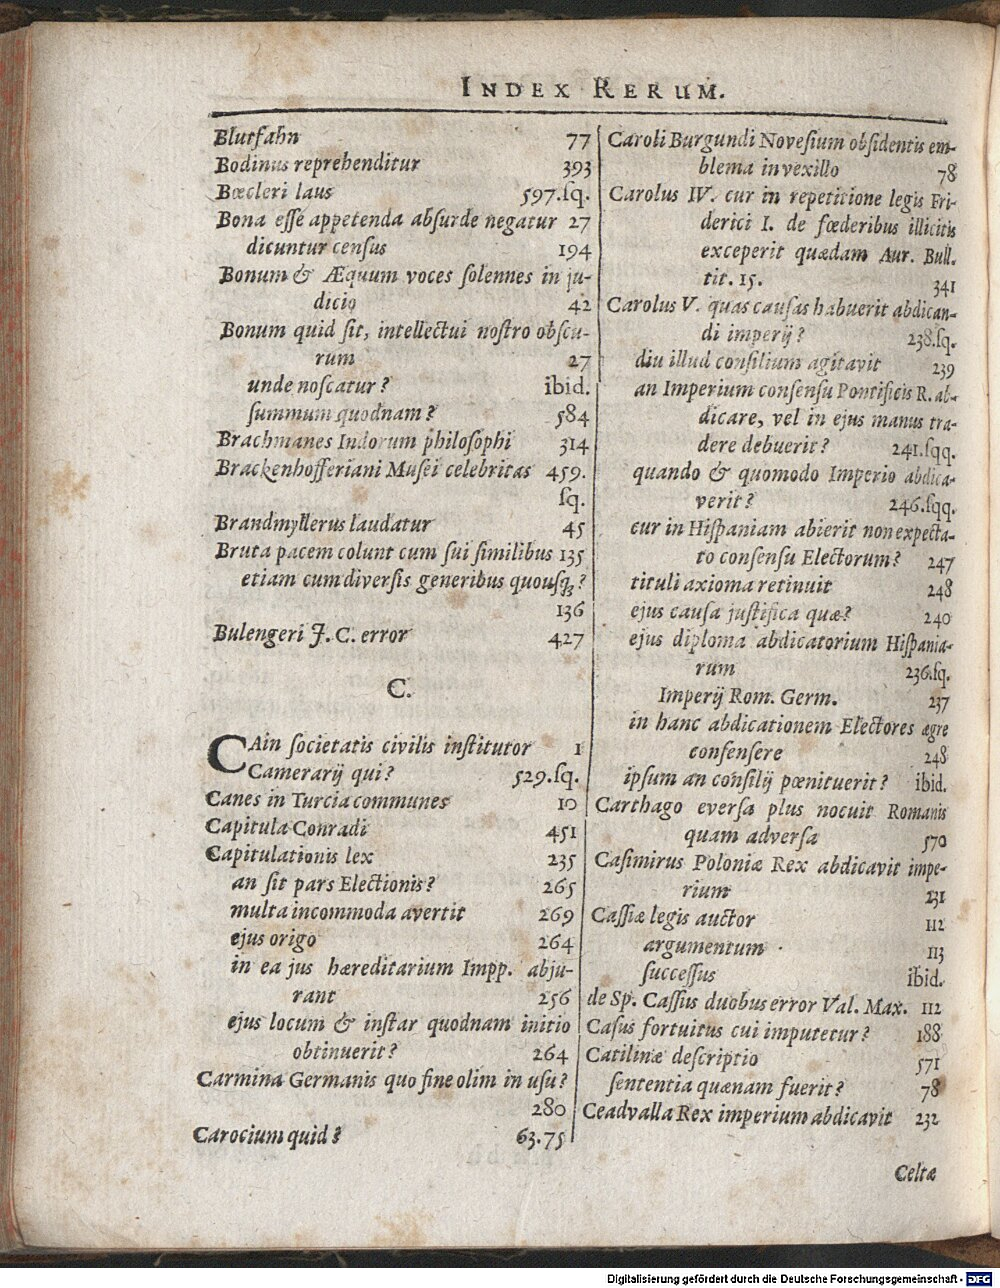 INDEX RERUM.
Blutfahn 77
Bodinus reprehenditur 393
Bœcleri laus 597.ſq.
Bona eſſe appetenda abſurde negatur 27
dicuntur cenſus 194
Bonum & Æquum voces ſolennes in ju-
dicio 42
Bonum quid ſit, intellectui noſtro obſcu-
rum 27
unde noſcatur? ibid.
ſummum quodnam? 584
Brachmanes Indorum philoſophi 314
Brackenhofferiani Muſei celebritas 459.
ſq.
Brandmyllerus laudatur 45
Bruta pacem colunt cum ſui ſimilibus 135
etiam cum diverſis generibus quouſq;?
136
Bulengeri J. C. error 427
C.
CAin ſocietatis civilis inſtitutor 1
Camerarij qui? 529.ſq.
Canes in Turcia communes 10
Capitula Conradi 451
Capitulationis lex 235
an ſit pars Electionis? 265
multa incommoda avertit 269
ejus origo 264
in ea jus hæreditarium Impp. abju-
rant 256
ejus locum & inſtar quodnam initio
obtinuerit? 264
Carmina Germanis quo fine olim in uſu?
280
Carocium quid? 63.75
Caroli Burgundi Noveſium obſidentis em-
blema in vexillo 78
Carolus IV. cur in repetitione legis Fri-
derici I. de fœderibus illicitis
exceperit quædam Aur. Bull.
tit. 15. 341
Carolus V. quas cauſas habuerit abdican-
di imperij? 238.ſq.
diu illud conſilium agitavit 239
an Imperium conſenſu Pontificis R. ab-
dicare, vel in ejus manus tra-
dere debuerit? 241.ſqq.
quando & quomodo Imperio abdica-
verit? 246.ſqq.
cur in Hiſpaniam abierit non expecta-
to conſenſu Electorum? 247
tituli axioma retinuit 248
ejus cauſa juſtifica quæ? 240
ejus diploma abdicatorium Hiſpania-
rum 236.ſq.
Imperij Rom. Germ. 237
in hanc abdicationem Electores ægre
conſenſere 248
ipſum an conſilij pœnituerit? ibid.
Carthago everſa plus nocuit Romanis
quam adverſa 570
Caſimirus Poloniæ Rex abdicavit impe-
rium 231
Caſſiæ legis auctor 112
argumentum 113
ſucceſſus ibid.
de Sp. Caſſius duobus error Val. Max. 112
Caſus fortuitus cui imputetur? 188
Catilinæ deſcriptio 571
ſententia quænam fuerit? 78
Ceadvalla Rex imperium abdicavit 232
Celtæ
Digitalisierung gefördert durch die Deutsche Forschungsgemeinschaft - DFG